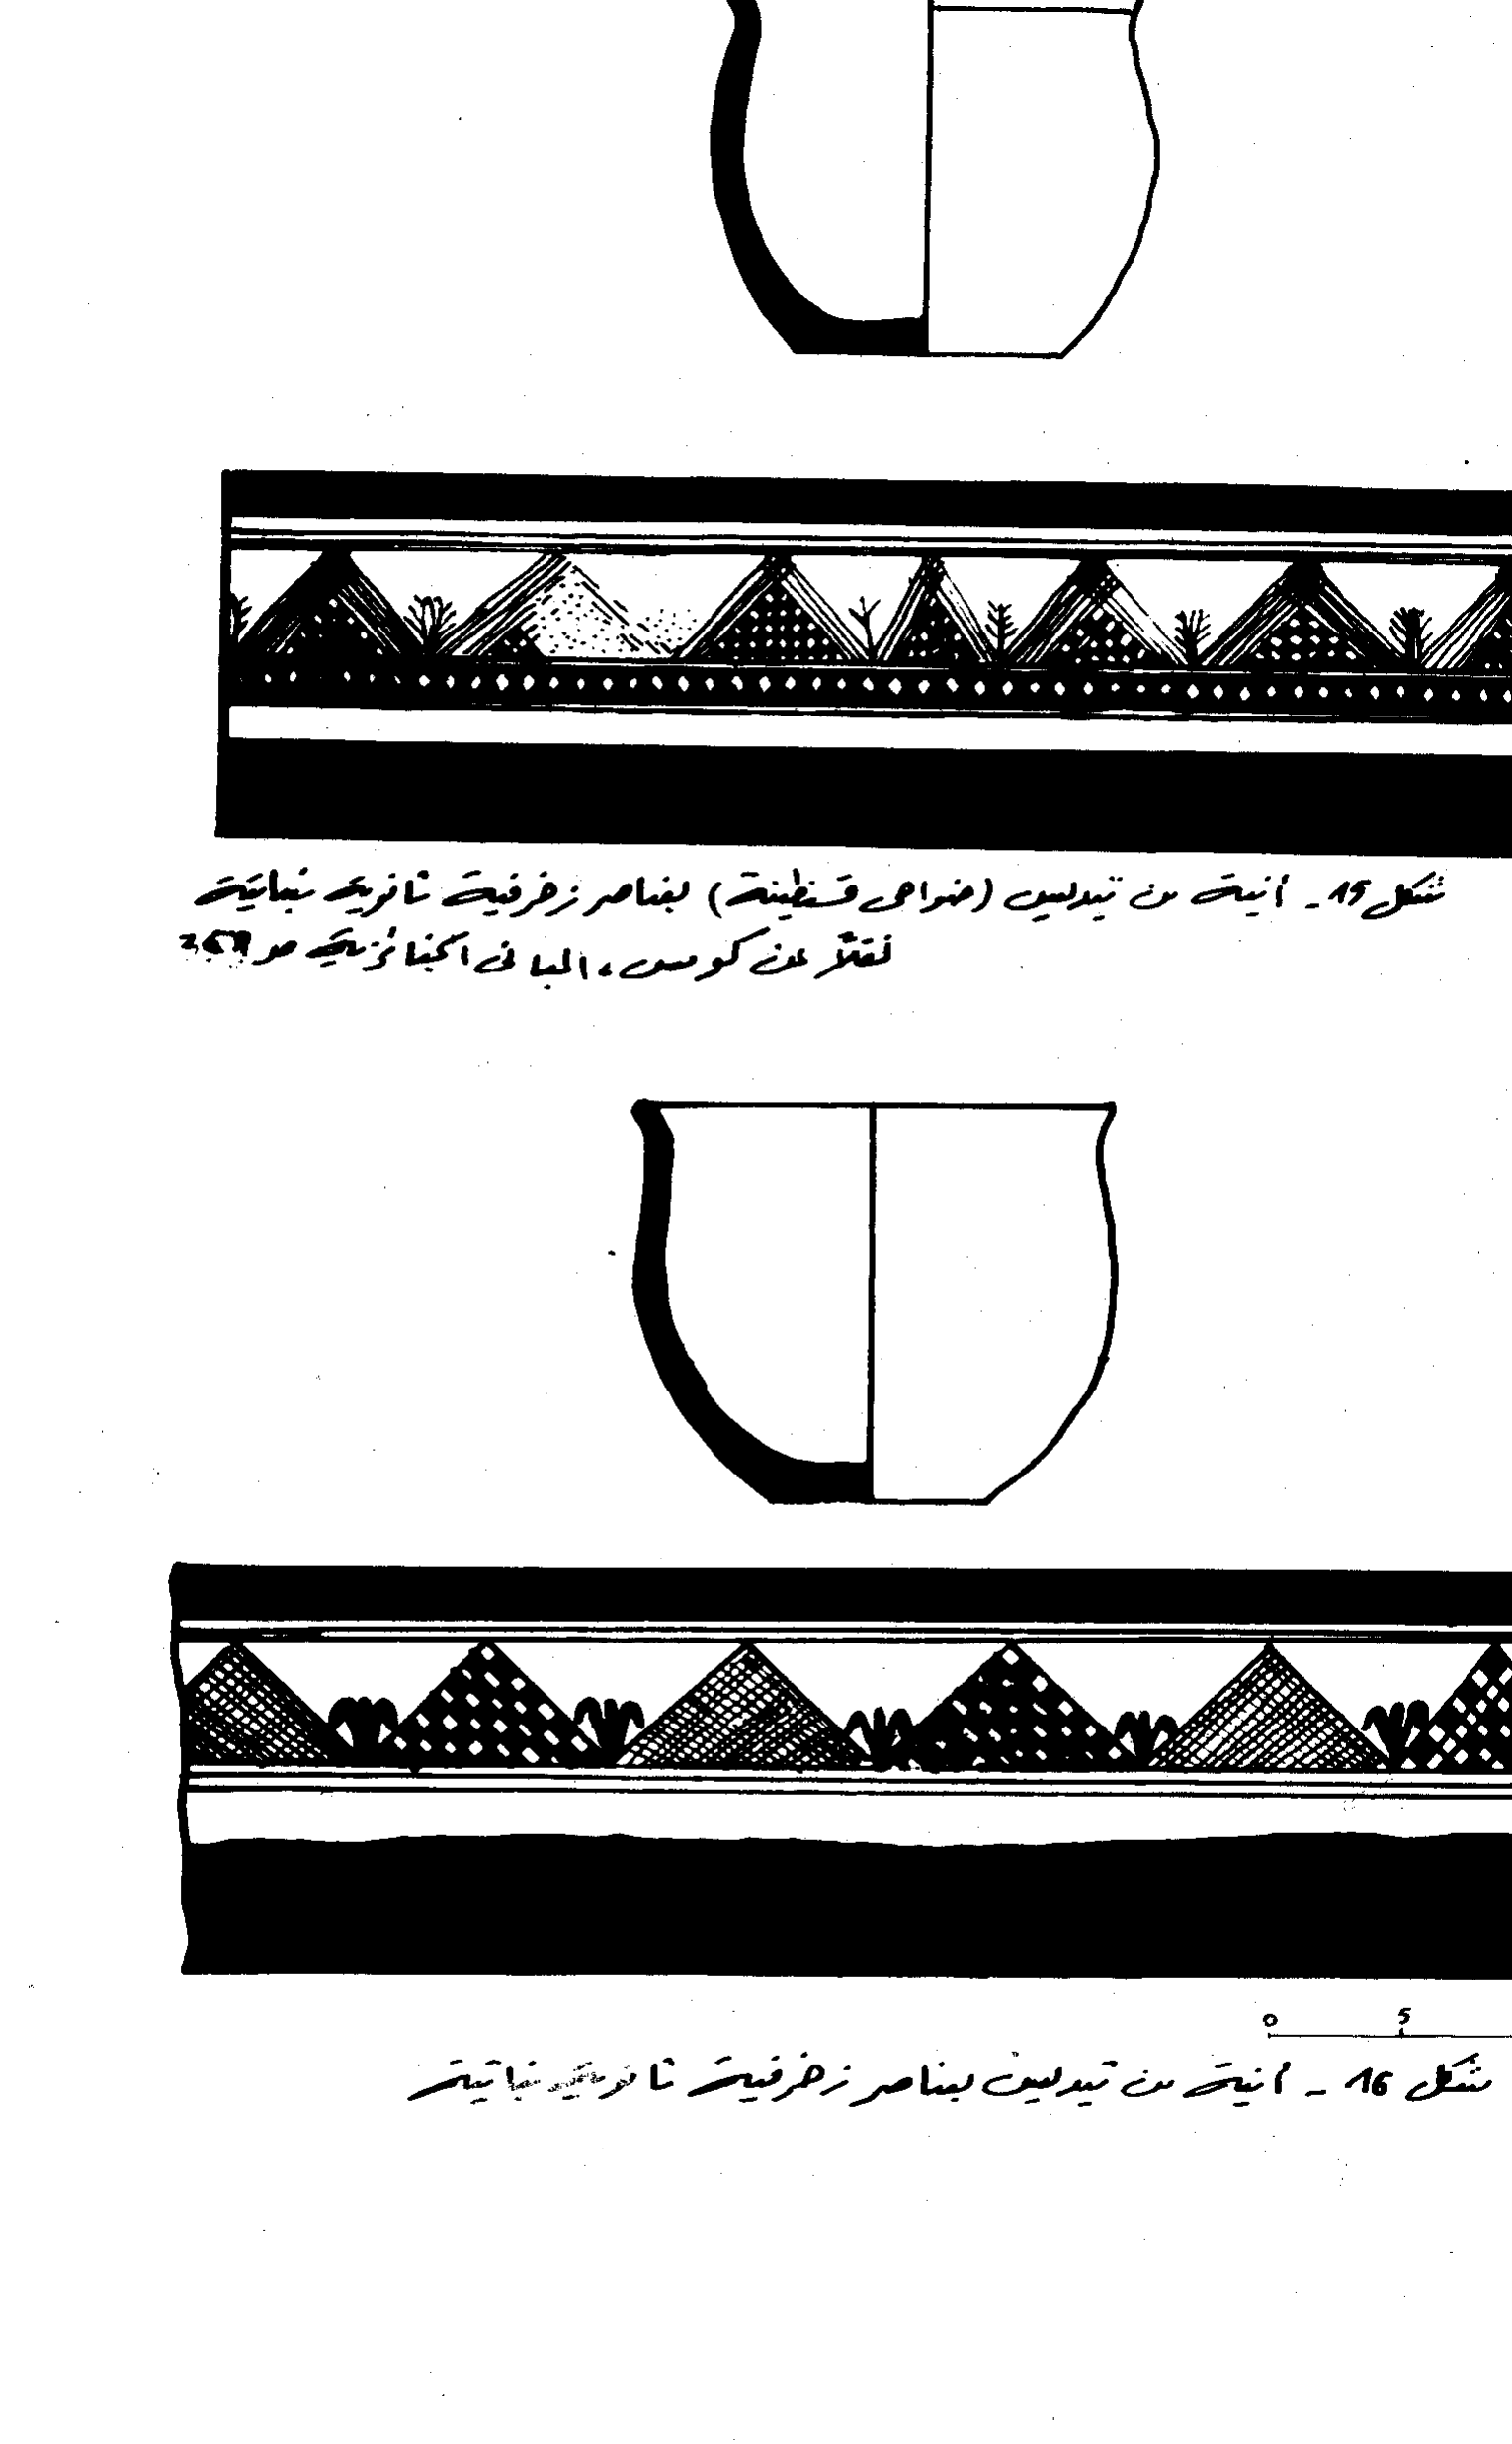 شكل 15 - آنية من تيديس (ضواحي قسنطينة) بعناصر زخرفية ثانوية نباتية
نقلاً عن كومس، المباني الجنائزية ص
0 5
شكل 16 - آنية من تيديس بعناصر زخرفية ثانوية نباتية